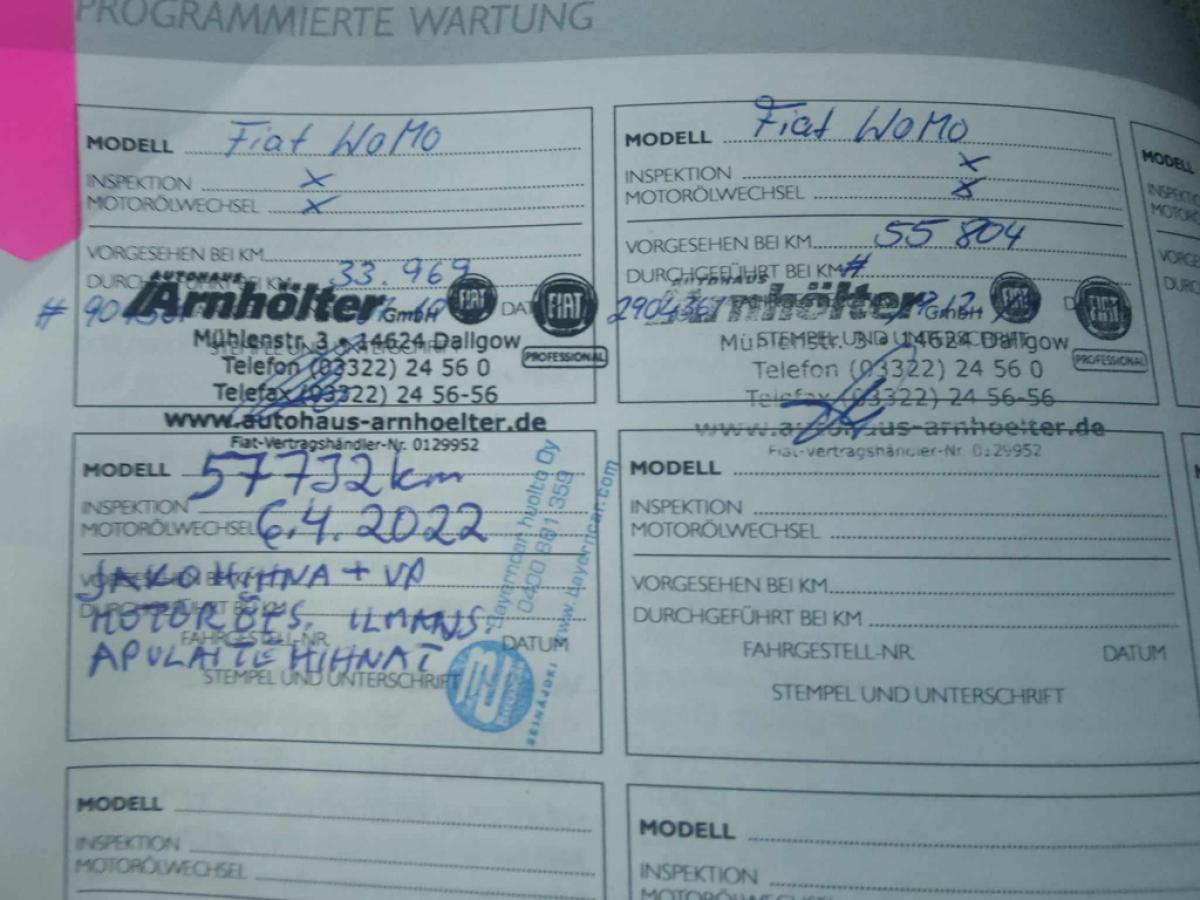 PROGRAMMIERTE WARTUNG
MODELL Fiat WoMo
INSPEKTION x
MOTORÖLWECHSEL x
VORGESEHEN BEI KM
DURCHGEFÜHRT BEI KM 33.969
AUTOHAUS
Arnhölter GmbH FIAT FIAT
PROFESSIONAL
Mühlenstr. 3 • 14624 Dallgow
Telefon (03322) 24 56 0
Telefax (03322) 24 56-56
www.autohaus-arnhoelter.de
Fiat-Vertragshändler-Nr. 0129952
MODELL Fiat WoMo
INSPEKTION x
MOTORÖLWECHSEL x
VORGESEHEN BEI KM 55 804
DURCHGEFÜHRT BEI KM #
AUTOHAUS
Arnhölter GmbH FIAT FIAT
PROFESSIONAL
STEMPEL UND UNTERSCHRIFT
Mühlenstr. 3 • 14624 Dallgow
Telefon (03322) 24 56 0
Telefax (03322) 24 56-56
www.autohaus-arnhoelter.de
Fiat-Vertragshändler-Nr. 0129952
MODELL
INSPEKTION
MOTOR
MODELL 57732 km
INSPEKTION
MOTORÖLWECHSEL 6.4.2022
VORGESEHEN BEI KM
JAKOHIHNA + VP
DURCHGEFÜHRT BEI KM
MOTORÖFS. ILMANS
FAHRGESTELL-NR. DATUM
APULAITEHIHNAT
STEMPEL UND UNTERSCHRIFT
Bayerncar huolto Oy
0400 881 359
www.bayerncar.com
MODELL
INSPEKTION
MOTORÖLWECHSEL
VORGESEHEN BEI KM
DURCHGEFÜHRT BEI KM
FAHRGESTELL-NR. DATUM
STEMPEL UND UNTERSCHRIFT
MODELL
INSPEKTION
MOTORÖLWECHSEL
MODELL
INSPEKTION
MOTORÖLWECHSEL